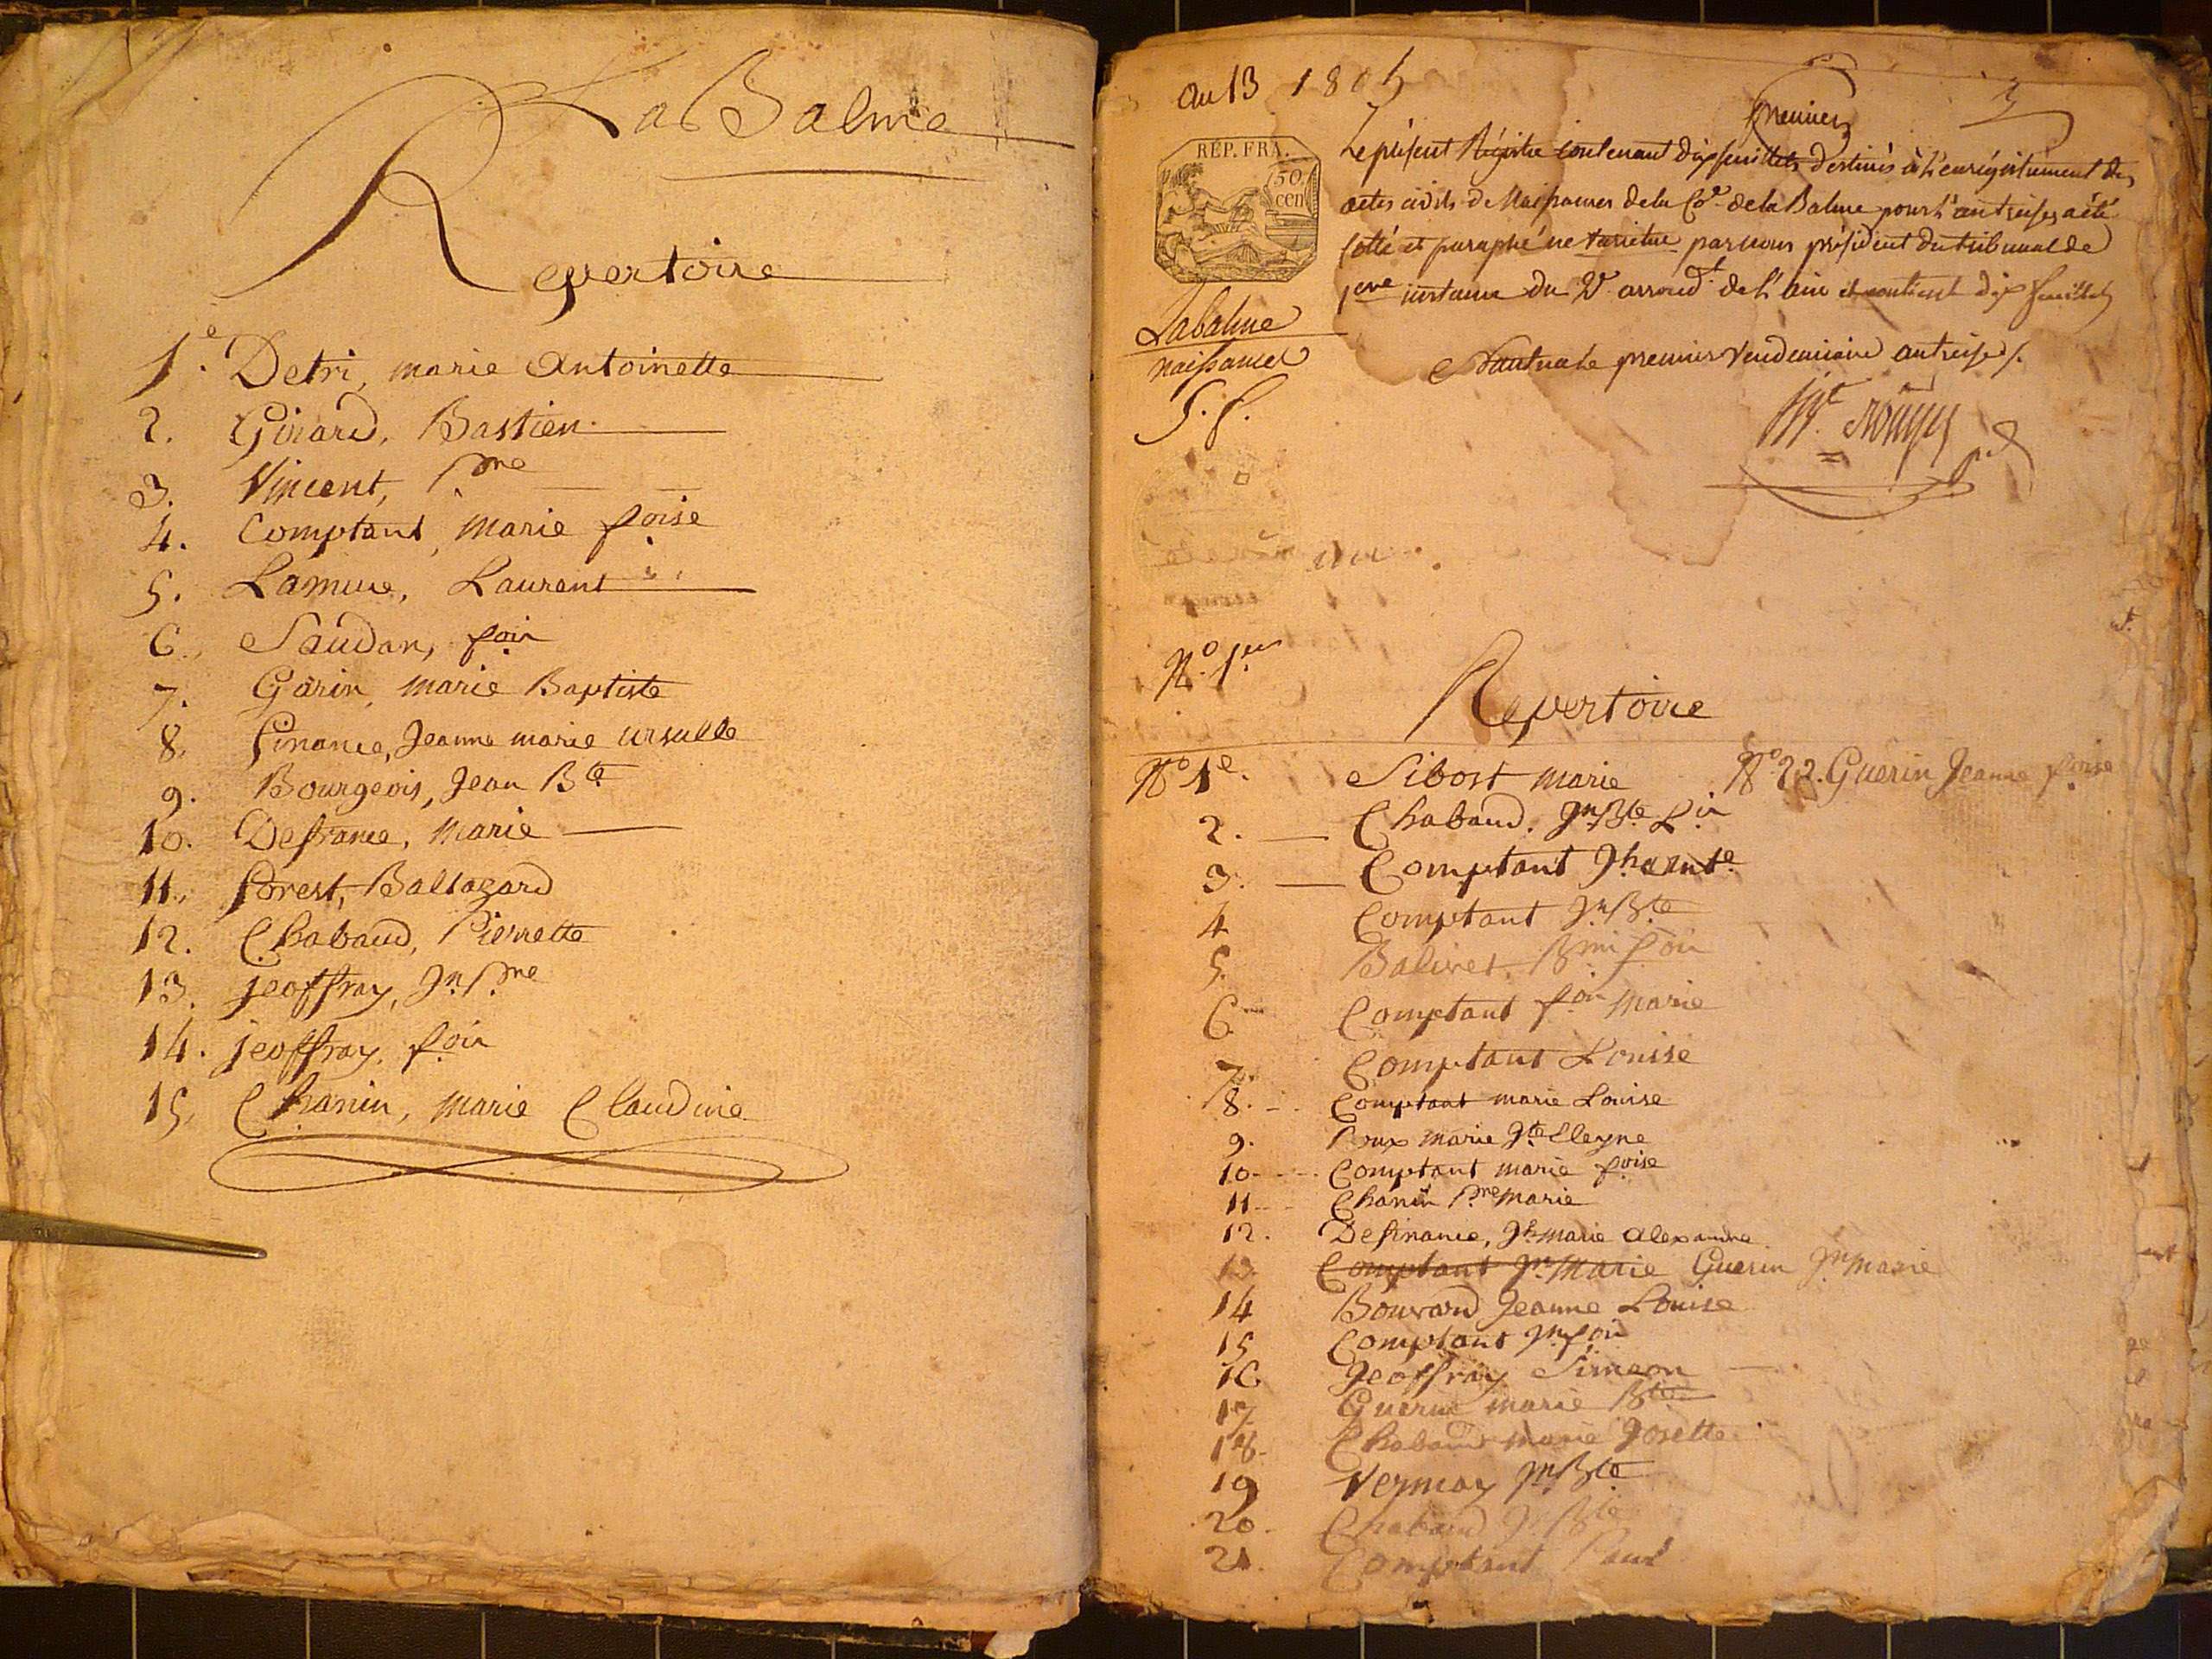 La Balme
Repertoire
1.e Detri, marie Antoinette
2. Girard, Bastien
3. Vincent, P.rre
4. Comptant, Marie f.oise
5. Lamure, Laurent
6. Saudan, f.ois
7. Garin, marie Baptiste
8. finance, Jeanne marie ursulle
9. Bourgeois, Jean B.te
10. Defrance, Marie
11. forest, Baltazard
12. Chabaud, Pierrette
13. jeoffray, J.n P.rre
14. jeoffray, f.ois
15. Chanin, marie Claudine
an 13 1805
premier
REP. FRA.
50 cen
Le présent Régistre contenant dix feuillets destinés à l'enrégistrement des
actes civils de Naissances de la Co.e de la Balme pour l'an treize, a été
cotté et paraphé ne varietur par nous président du tribunal de
1ere instance du 2e arrond.t de l'ain et contient dix feuillets
Labalme
naissances
Nantua le premier Vendemiaire an treize.
N.o 1.er
Repertoire
N.o 1.e Sibost marie
N.o 22. Guerin Jeanne f.oise
2. Chabaud. J.n B.te
3. Comptant
4 Comptant J.n B.te
5. Balivet,
6 Comptant f.ois Marie
7. Comptant Louise
8. Comptant marie Louise
9. Roux marie
10 Comptant marie f.oise
11 Chanin P.rre marie
12. Definance, J.h Marie Alexandre
13. Comptant J.n Marie Guerin J.n Marie
14 Bouvard Jeanne Louise
15 Comptant J.n f.ois
16 Jeoffray Simeon
17 Guerin marie B.te
18 Chabaud marie Josette
19 Vermay J.n B.te
20 Chabaud J.n B.te
21. Comptant Paul